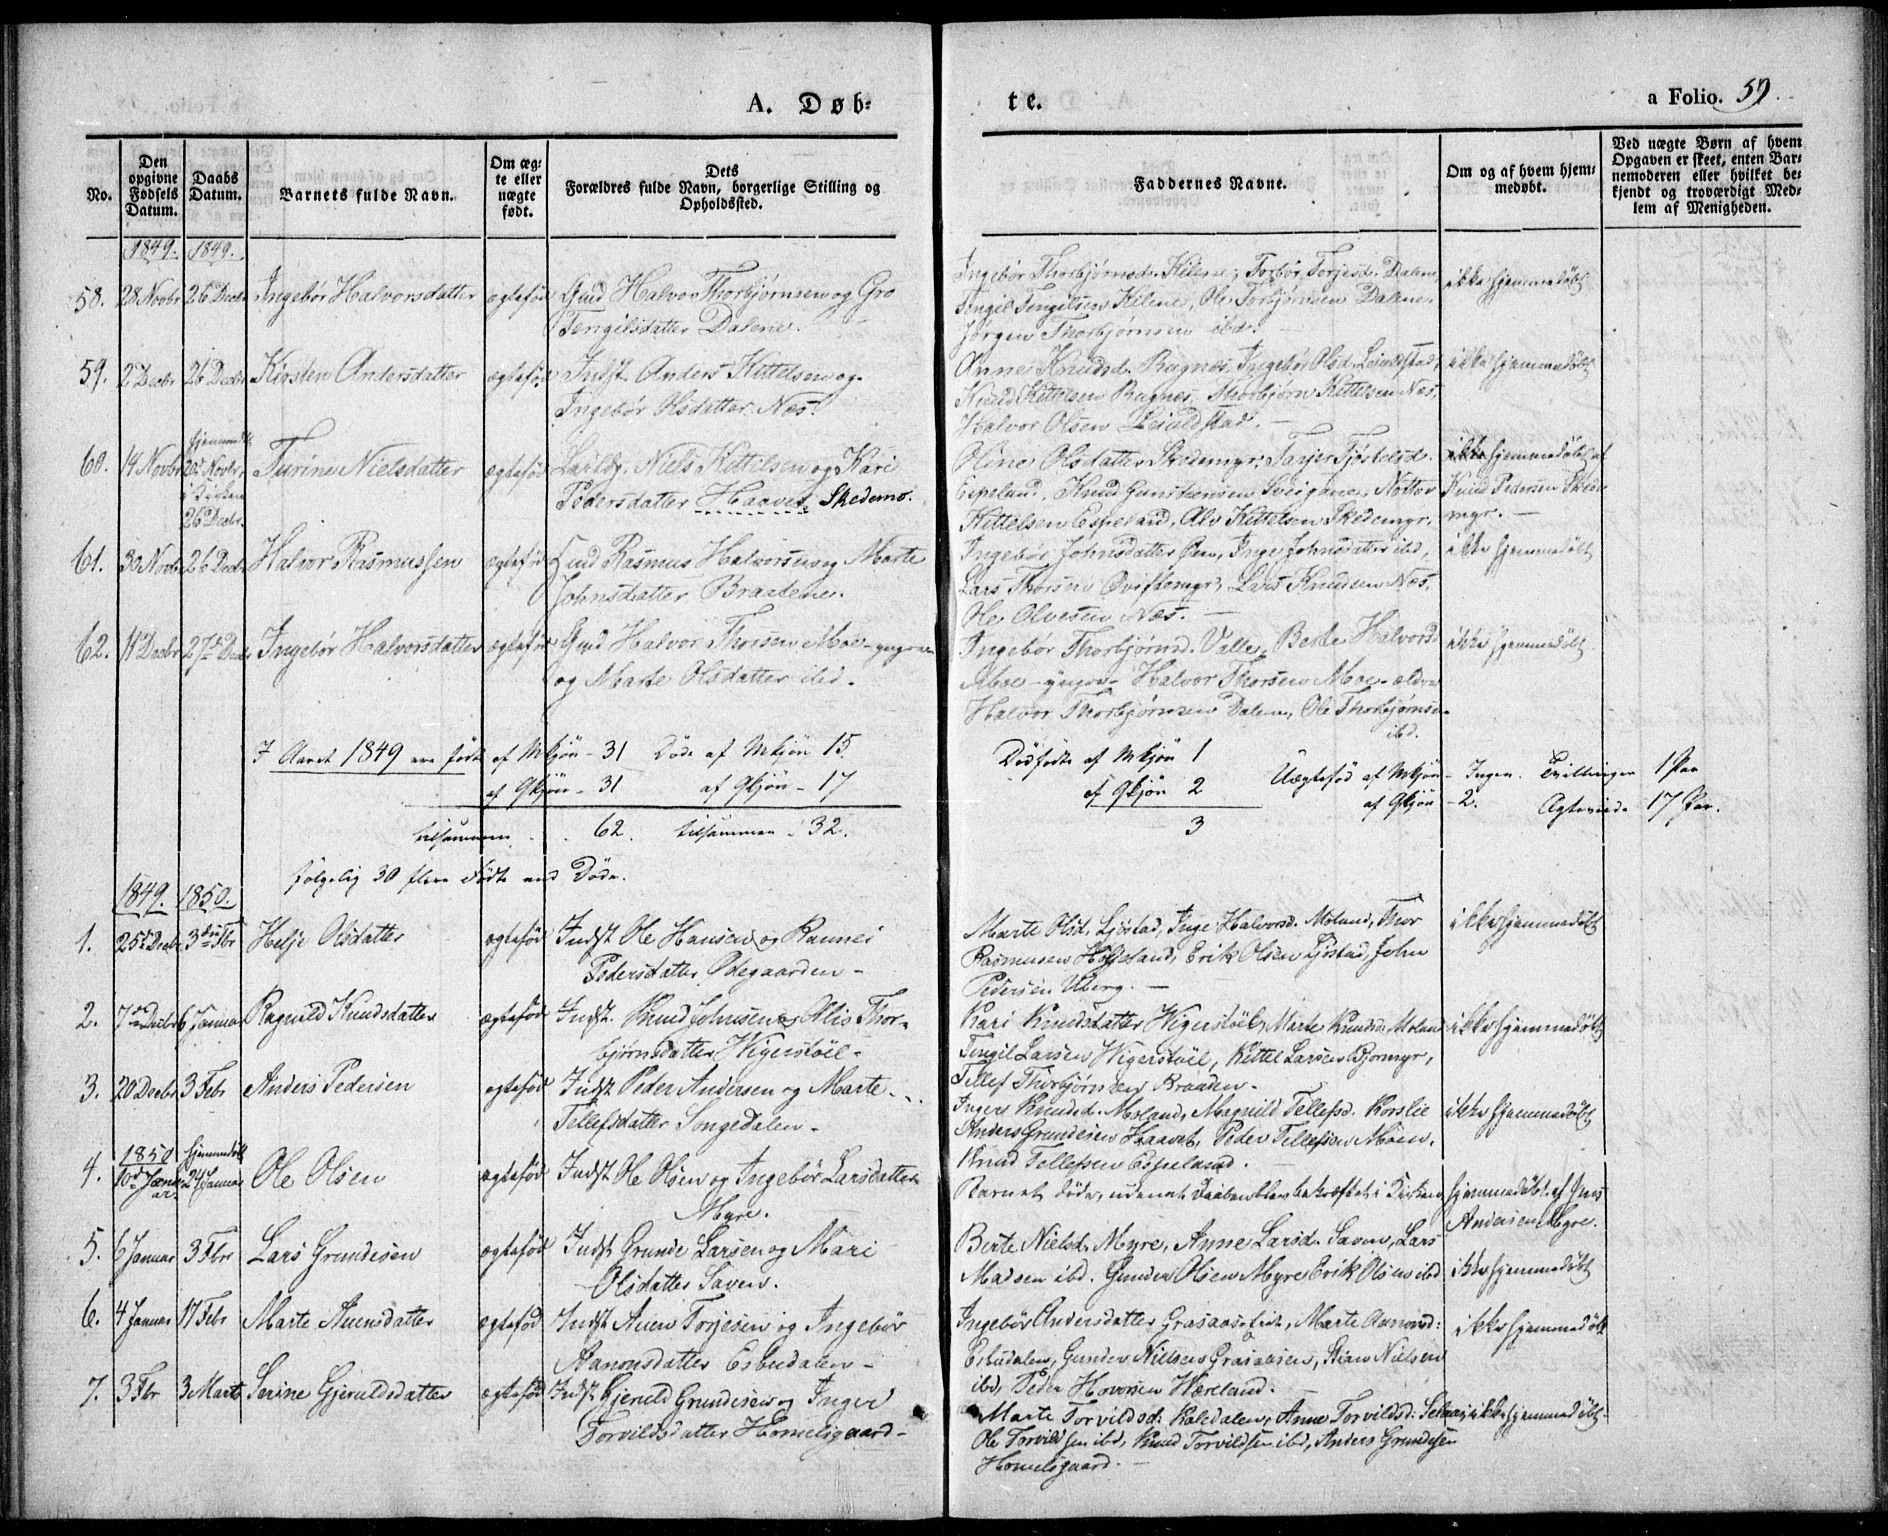 A. Døb-
te.
a Folio. 59.
No.
Den opgivne Fødsels Datum.
Daabs Datum.
Barnets fulde Navn.
Om ægte eller nægte født.
Dets Forældres fulde Navn, borgerlige Stilling og Opholdssted.
Faddernes Navne.
Om og af hvem hjemmedøbt.
Ved nægte Børn af hvem Opgaven er skeet, enten Barnemoderen eller hvilket bekjendt og troværdigt Medlem af Menigheden.
1849. 1849.
58. 28 Novbr 26 Decbr Ingebør Halvorsdatter ægtefød Gmd Halvor Thorbjørnsen og Gro
Tengilsdatter Dalene.
Ingebør Thorbjørnsd. Kilene, Torbør Torjesd. Dalene,
Tengil Tengilsen Kilene, Ole Torbjørnsen Dalene,
Jørgen Thorbjørnsen ibd.
ikke hjemmedøbt
59. 2 Decbr 26 Decbr Kirsten Andersdatter ægtefød Indst. Anders Kittelsen og
Ingebør Olsdatter Næs.
Anne Knudsd. Bugnæs, Ingebør Olsd. Leiulfstad,
Knud Kittelsen Bugnæs, Thorbjørn Kittelsen Næs,
Halvor Olsen Leiulfstad.
ikke hjemmedøbt
60. 14 Novbr hjemmedøbt 20d Novbr i Kirken 26 Decbr. Turine Nielsdatter ægtefød Niels Kittelsen og Kari
Pedersdatter Haavet. Skedemo.
Oline Olsdatter Skedemyr, Tarjer Tjøstelsd.
Espeland, Knud Gunstensen Sveigane, Nottov
Kittelsen Espeland, Alv Kittelsen Skedemyr.
ikke hjemmedøbt af
Knud Pedersen Skede
myr.
61. 30 Novbr 26 Decbr Halvor Rasmussen ægtefød Rasmus Halvorsen og Marte
Johnsdatter Braatene.
Ingebør Johnsdatter Øen, Inge Johnsdatter ibd,
Lars Thorsen Qviftemyr, Lars Knudsen Næs.
Ole Olvesen Næs.
ikke hjemmedøbt
62. 11 Decbr 27d Decbr Ingebør Halvorsdatter ægtefød Gmd Halvor Thorsen Moe - yngre
og Marte Olsdatter ibd.
Ingebør Thorbjørnsd. Valle, Berte Halvorsd
Moe - yngre - Halvor Thorsen Moe - ældre
Halvor Thorbjørnsen Dalen, Ole Thorbjørnsen
ibd.
ikke hjemmedøbt.
I Aaret 1849 ere fødte af Mkjøn - 31 Døde af Mkjøn 15.
af Qkjøn - 31 af Qkjøn - 17
tilsammen 62. tilsammen - 32.
følgelig 30 flere Fødte end Døde.
Dødfødte af Mkjøn 1
af Qkjøn 2
3
Uægtefød af Mkjøn - Ingen. Tvillinger 1 Par
af Qkjøn - 2. Ægteviede 17 Par.
1849. 1850.
1. 25d Decbr 3die Fbr Helje Olsdatter ægtefød Indst Ole Hansen og Rannei
Pedersdatter Ødegaarden -
Marte Olsd. Ljøstad, Inge Halvorsd. Moland, Thor
Rasmusen Heljeland, Erik Olsen Ljøstad, John
Pedersen Uberg.
ikke hjemmedøbt
2. 7de Decbr 6 Januar Ragnild Knudsdatter ægtefød Indst. Knud Johnsen og Alis Thor-
bjørnsdatter Wigerstøil -
Kari Knudsdatter Wigerstøil, Marte Knudsd. Moland
Tengil Larsen Wigerstøil, Kittel Larsen Bjormyr,
Tellef Thorbjørnsen Braaden -
ikke hjemmedøbt
3. 20 Decbr 3 Febr Anders Pedersen ægtefød Indst Peder Andersen og Marte
Tellefsdatter Songedalen -
Inger Knudsd. Moland, Magnild Tellefsd. Korslie
Anders Grundesen Haavet, Peder Tellefsen Moen,
Knud Tellefsen Espeland.
ikke hjemmedøbt
4. 1850 10d Januar hjemmedøbt 24 Januar Ole Olsen ægtefød Indst Ole Olsen og Ingebør Larsdatter
Myre.
Barnet døde, udenat Daaben blev bekræftet i Kirken
hjemmedøbt af Jens
Andersen Myre.
5. 6 Januar 3 Fbr Lars Grundesen ægtefød Indst Grunde Larsen og Mari
Olsdatter Saven.
Berte Nielsd. Myre, Anne Larsd. Saven, Lars
Madsen ibd. Gunder Olsen Myre Erik Olsen ibd
ikke hjemmedøbt
6. 4 Januar 17 Febr Marte Auensdatter ægtefød Indst Auen Torjesen og Ingebør
Aanonsdatter Esbudalen -
Ingebør Andersdatter Grasaas, Marte Aanonsd:
Esbudalen, Gunder Nielsen Grasaasen, Stian Nielsen
ibd, Peder Hovorsen Wæreland.
ikke hjemmedøbt
7. 3 Fbr 3 Marts Serine Gjeruldsdatter ægtefød Indst. Gjeruld Grundesen og Inger
Torvildsdatter Homelsgaard -
Marte Torvildsd: Koledalen, Anne Torvildsd: Selaas
Ole Torvildsen ibd, Knud Torvildsen ibd, Anders Grundesen
Homelsgaard.
ikke hjemmedøbt